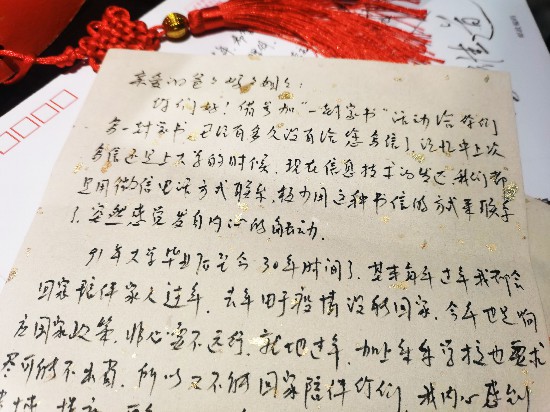 亲爱的爸爸妈妈:
你们好!借参加“一封家书”活动给你们
写一封家书。已经有多久没有给您写信了,记忆中上次
写信还是上大学的时候。现在信息技术的发达,我们都
是用微信电话方式联系,较少用这种书信的方式来联系
了,突然感觉发自内心的触动。
91年大学毕业后至今30年时间了,基本每年过年我都会
回家陪伴家人过年,去年由于疫情没能回家,今年也是响
应国家政策,非必要不远行,就地过年,加上乐乐学校也要求
尽可能不出省,所以又不能回家陪伴你们,我内心感到